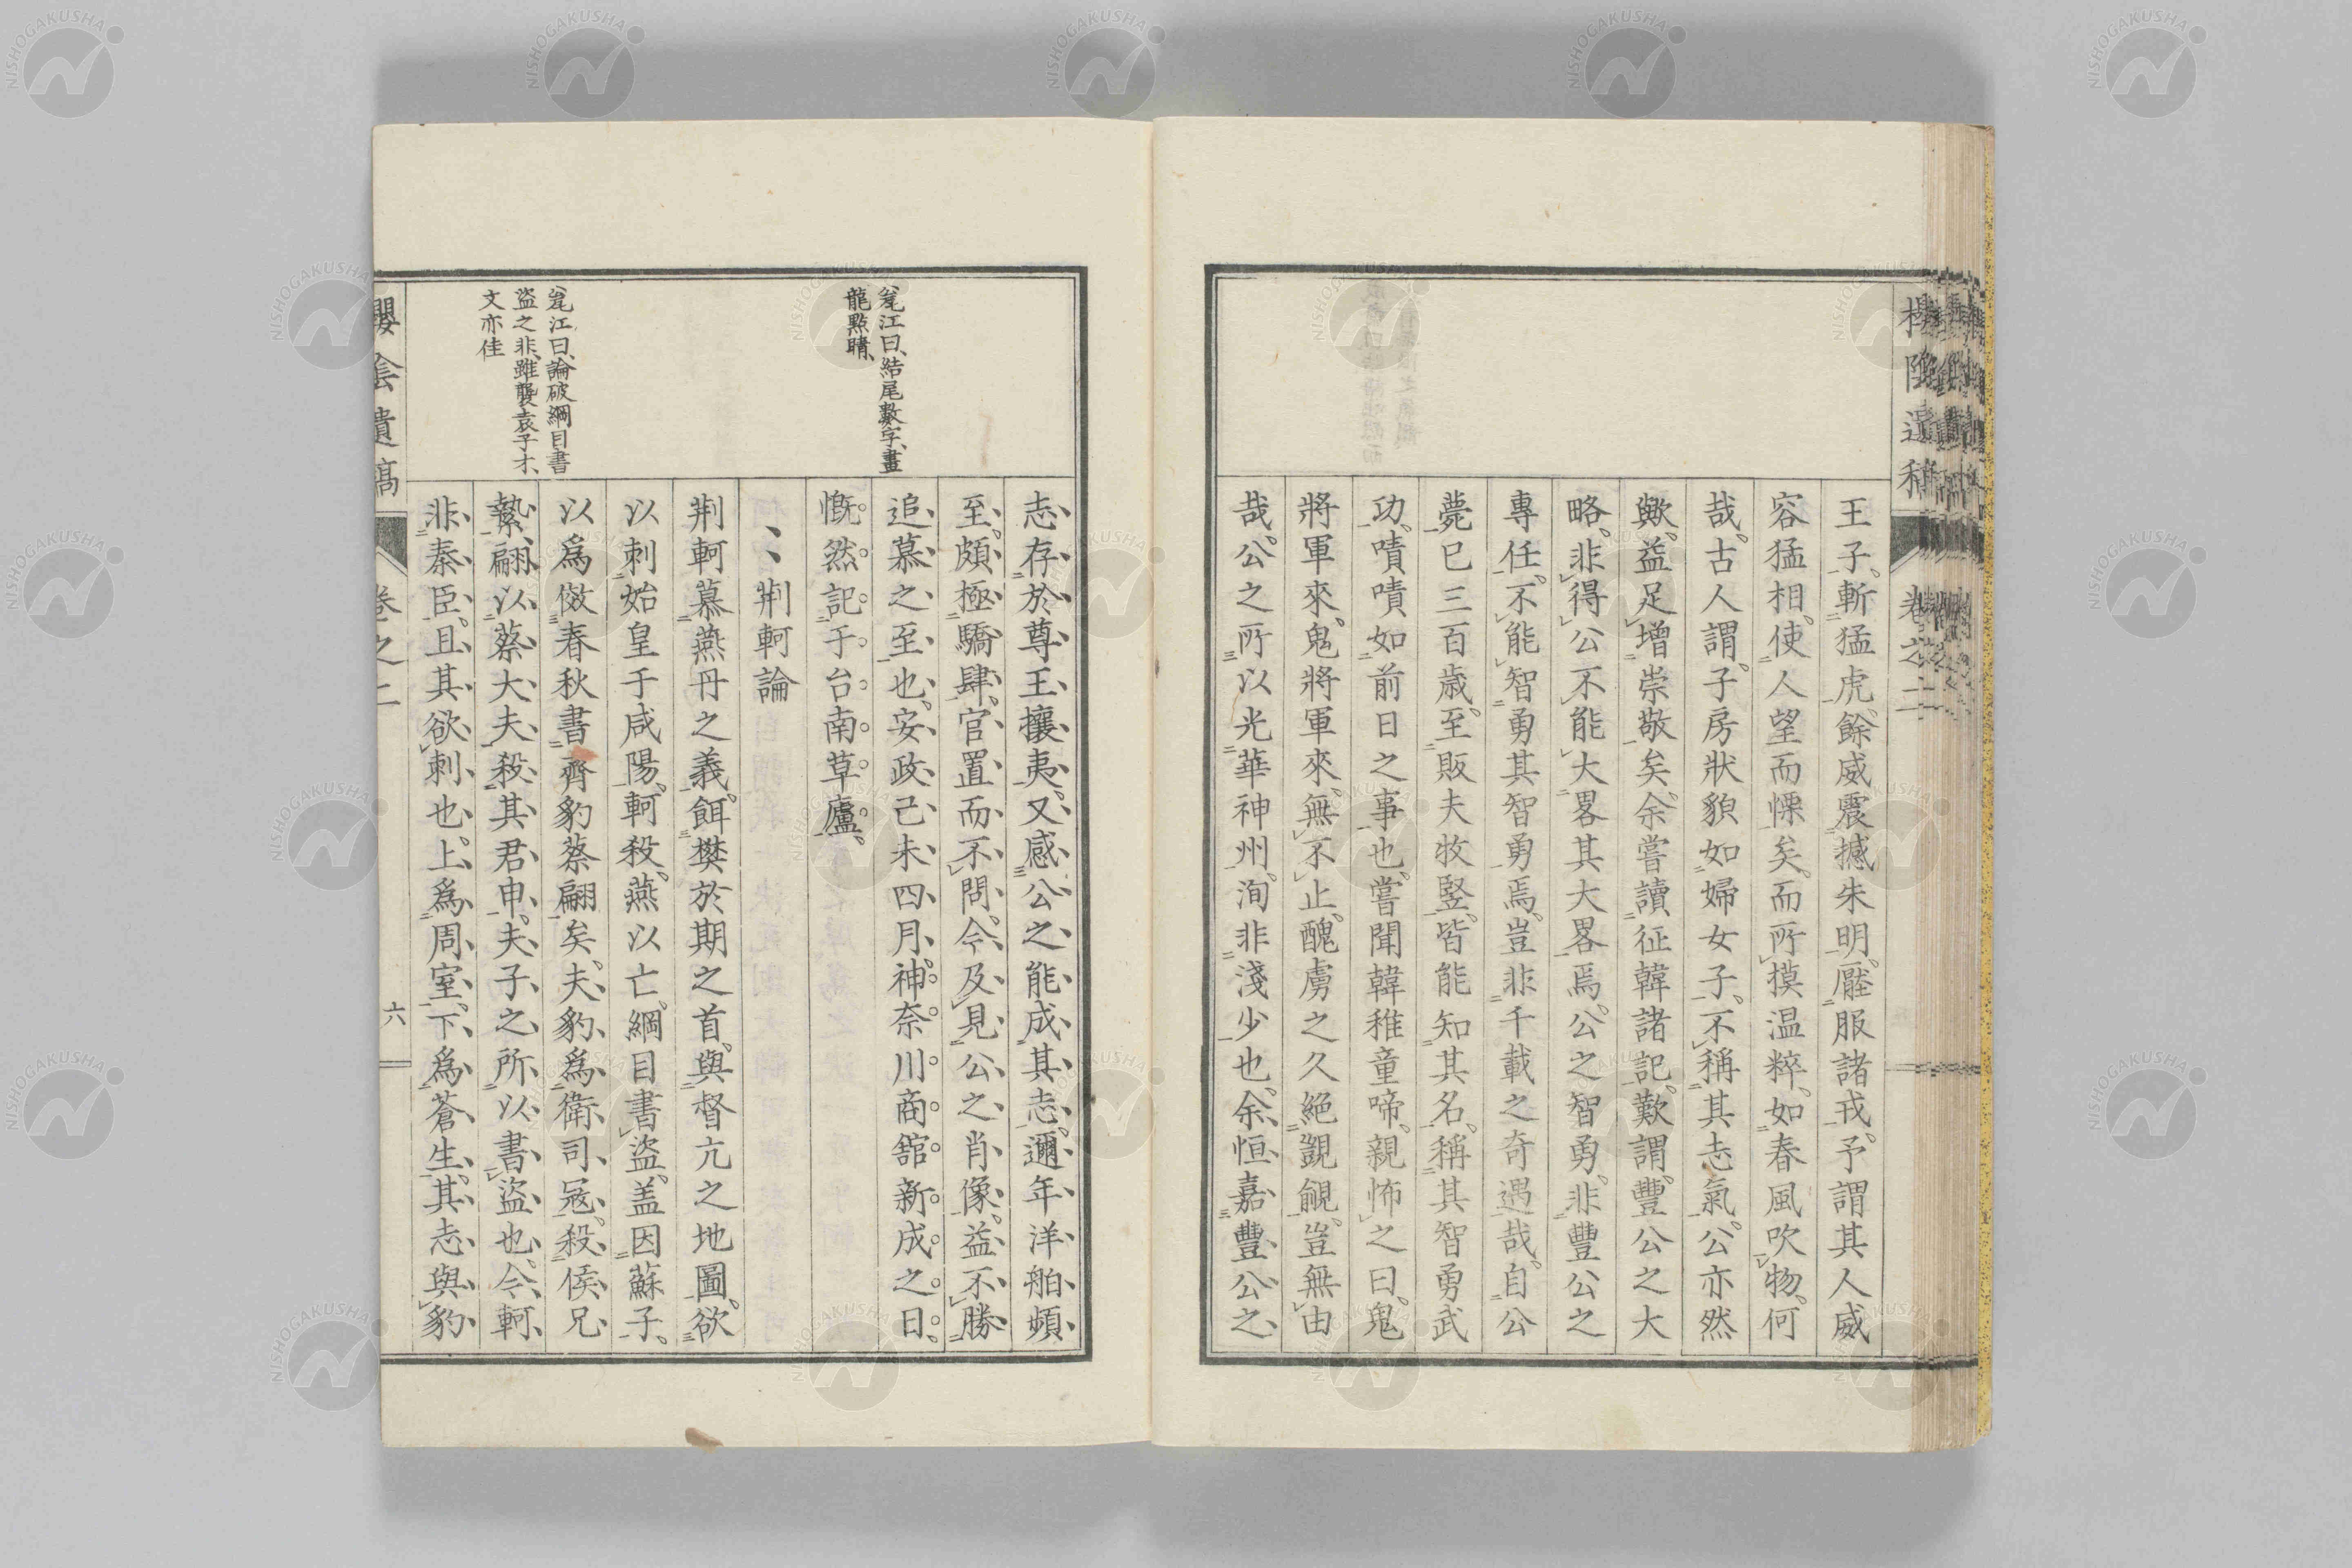 王子、斬猛虎、餘威震撼朱明、壓服諸戎、予謂其人威
容猛相、使人望而慄矣、而所摸温粹、如春風吹物、何
哉、古人謂、子房狀貌如婦女子、不稱其志氣、公亦然
歟、益足增崇敬矣、余嘗讀征韓諸記、歎謂、豐公之大
略、非得公不能大畧其大畧焉、公之智勇、非豐公之
專任、不能智勇其智勇焉、豈非千載之奇遇哉、自公
薨已三百歳、至販夫牧竪、皆能知其名、稱其智勇武
功、嘖嘖如前日之事也、嘗聞韓稚童啼、親怖之曰、鬼
將軍來、鬼將軍來、無不止、醜虜之久絕覬覦、豈無由
哉、公之所以光華神州、洵非淺少也、余恒嘉豐公之
志存於尊王攘夷、又感公之能成其志、邇年洋舶頻
至、頗極驕肆、官置而不問、今及見公之肖像、益不勝
追慕之至也、安政己未四月、神奈川商舘新成之日、
慨然記于台南草廬、
荆軻論
荆軻慕燕丹之義、餌樊於期之首、與督亢之地圖、欲
以刺始皇于咸陽、軻殺、燕以亡、綱目書盜、盖因蘇子、
以爲傚春秋書齊豹蔡翩矣、夫豹爲衛司冦、殺侯兄
縶、翩以蔡大夫、殺其君申、夫子之所以書盜也、今軻
非秦臣、且其欲刺也、上爲周室、下爲蒼生、其志與豹
瓮江曰、結尾數字、畫
龍點睛、
瓮江曰、論破綱目書
盜之非、雖襲袁子才、
文亦佳
卷之二
六
NISHOGAKUSHA